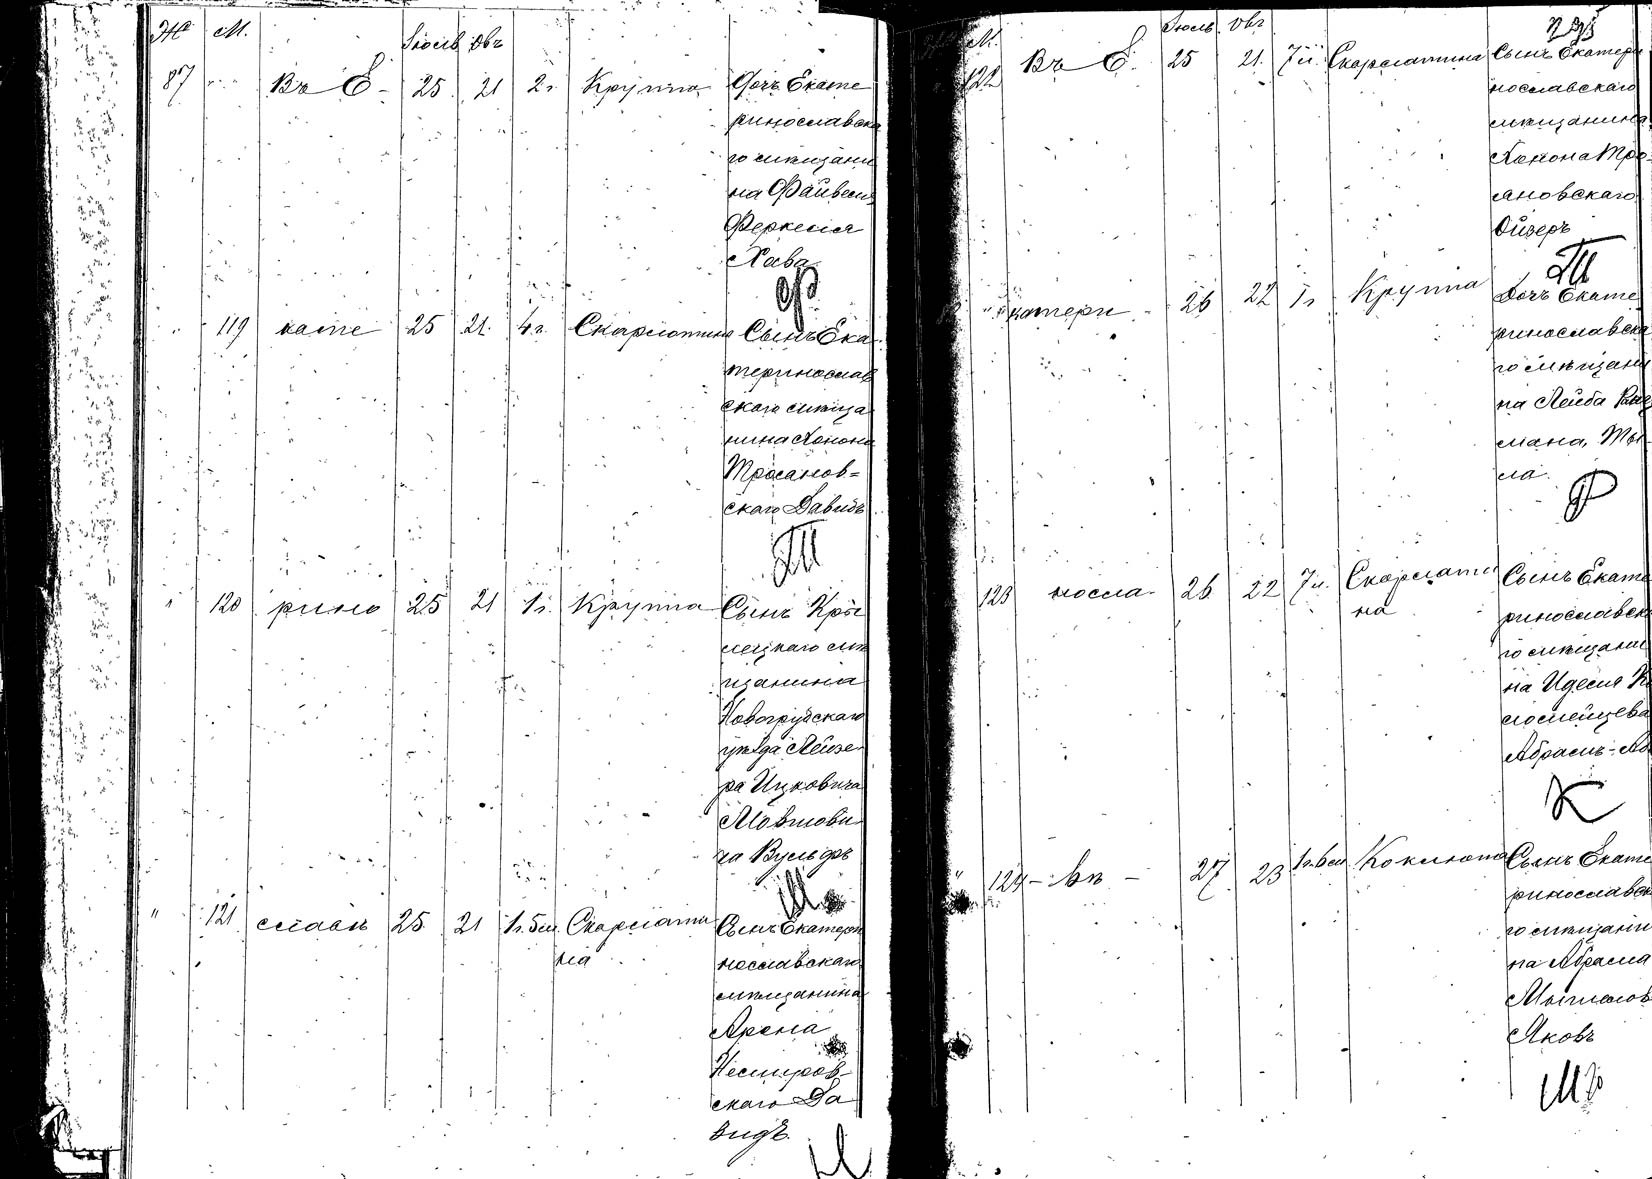 Ж М. Іюль Овъ
87 Въ Е- 25 21 2г. Крупъ Дочь Екате
ринославска
го мѣщани
на Файвеля
Феркеля
Хава
Ф
" 119 кате 25 21 4г. Скарлатина Сынъ Ека
теринослав
скаго мѣща
нина Хонона
Трояанов=
скаго Давидъ
Т
" 120 рино 25 21 1г. Крупъ Сынъ
мѣ
щанина
Новогрудскаго
уѣзда Лейзе
ра Ицковича
Мовшови
ча Вульфъ
М
" 121 славѣ 25 21 1г. 5м. Скарлати
на Сынъ Екатери
нославскаго
мѣщанина
Арона
Немиров-
скаго Да
видъ.
Н
М. Іюль Овъ
122 Въ Е- 25 21 7м. Скарлатина Сынъ Екатери
нославскаго
мѣщанина
Хонона Тро-
яновскаго
Ойзеръ
Т
" катери - 26 22 1г. Крупъ Дочь Екате
ринославска
го мѣщани
на Лейба
мана, Ты-
ла
Р
123 носла- 26 22 7м. Скарлати
на Сынъ Екате
ринославск
го мѣщани
на Иделя К
ломейцева
Абрамъ-Аб
К
" 124 - вѣ - 27 23 1г. 6м Коклюшъ Сынъ Екате
ринославск
го мѣщани
на Абрама
Яковъ
М